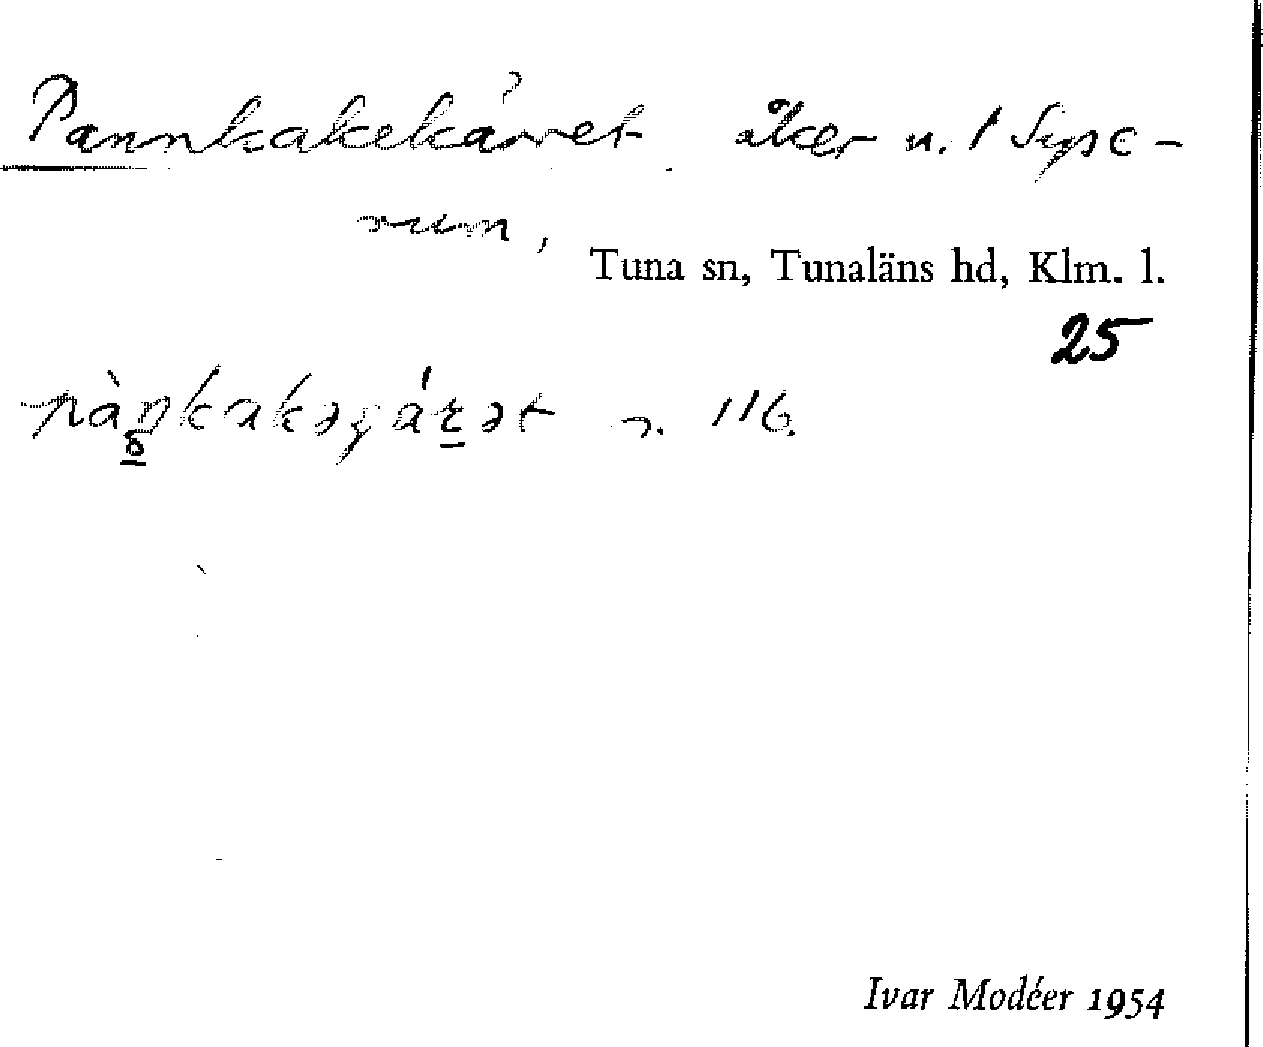 Pannkakekärret åker u. 1 Sype-
rum,
Tuna sn, Tunaläns hd, Klm. l.
25
116.
Ivar Modéer 1954